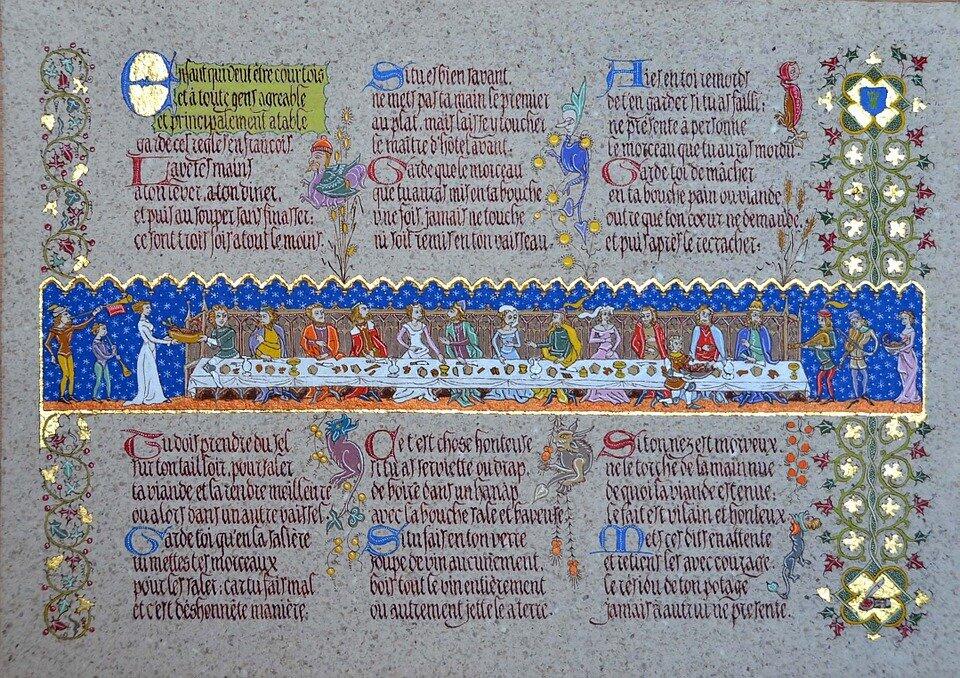 Enfant qui veut être courtois
et à toute gens agreable
et principalement a table
garde ces regles en françois.
Lave tes mains
a ton lever a ton diner,
et puis au souper sans finasser;
ce sont trois fois a tout le moins.
Si tu es bien savant.
ne mets pas ta main le premier
au plat, mais laisse y toucher
le maître d'hôtel avant.
Garde que le morceau
que tu auras mis en ta bouche
une fois, jamais ne touche
ni soit remis en ton vaisseau.
Aies en toi remords
de t'en garder si tu as failli;
ne présente à personne
le morceau que tu auras mordu.
Garde toi de mâcher
en ta bouche pain ou viande,
outre que ton coeur ne demande,
et puis après le recracher;
Tu dois prendre du sel
sur ton tailloir, pour saler
ta viande et la rendre meilleure
ou alors dans un autre vaissel
Garde toi qu'en la salière
tu mettes tes morceaux
pour les saler: car tu fais mal
et c'est déshonnête manière.
C'est chose honteuse
si tu as serviette ou drap,
de boire dans un hanap
avec la bouche sale et baveuse
Si tu fais en ton verre
soupe de vin aucunement.
bois tout le vin entièrement
ou autrement jette le a terre.
Si ton nez est morveux
ne le torche de la main nue
de quoi ta viande est tenue;
le fait est vilain et honteux
Mets ces dits en attente
et retiens les avec courage.
le résidu de ton potage
jamais à autrui ne présente.